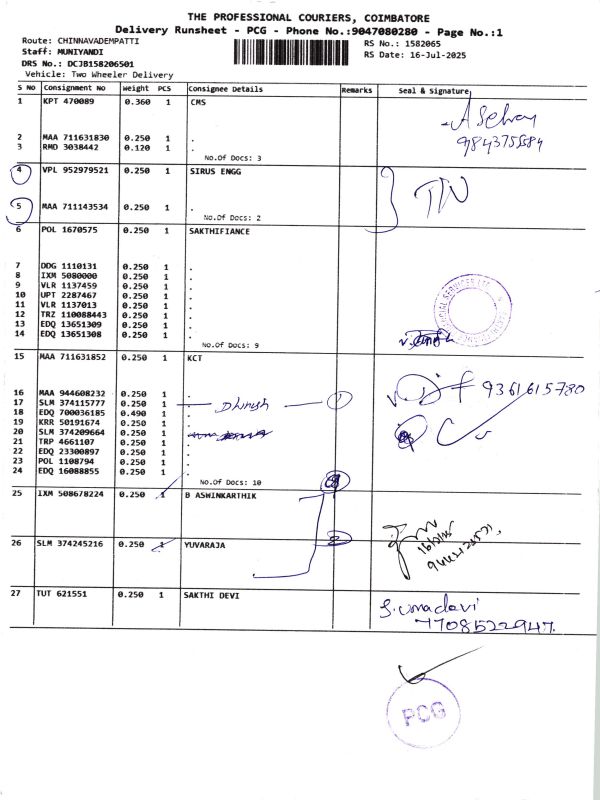 THE PROFESSIONAL COURIERS, COIMBATORE
Delivery Runsheet - PCG - Phone No.:9047080280 - Page No.:1
Route: CHINNAVADEMPATTI
Staff: MUNIYANDI
DRS No.: DCJB158206501
Vehicle: Two Wheeler Delivery
RS No.: 1582065
RS Date: 16-Jul-2025
S No Consignment No Weight PCS Consignee Details Remarks Seal & signature
1 KPT 470089 0.360 1 CMS
A Selva
2 MAA 711631830 0.250 1 .
3 RMD 3038442 0.120 1 .
No.Of Docs: 3
4 VPL 952979521 0.250 1 SIRUS ENGG
5 MAA 711143534 0.250 1 .
No.Of Docs: 2
6 POL 1670575 0.250 1 SAKTHIFIANCE
7 DDG 1110131 0.250 1 .
8 IXM 5080000 0.250 1 .
9 VLR 1137459 0.250 1 .
10 UPT 2287467 0.250 1 .
11 VLR 1137013 0.250 1 .
12 TRZ 110088443 0.250 1 .
13 EDQ 13651309 0.250 1 .
14 EDQ 13651308 0.250 1 .
No.Of Docs: 9
15 MAA 711631852 0.250 1 KCT
16 MAA 944608232 0.250 1 .
9361615780
17 SLM 374115777 0.250 1 . Dhinesh 1
18 EDQ 700036185 0.490 1 .
19 KRR 50191674 0.250 1 .
20 SLM 374209664 0.250 1 .
21 TRP 4661107 0.250 1 .
22 EDQ 23300897 0.250 1 .
23 POL 1108794 0.250 1 .
24 EDQ 16088855 0.250 1 .
No.Of Docs: 10
25 IXM 508678224 0.250 1 B ASHWINKARTHIK
26 SLM 374245216 0.250 1 YUVARAJA 2
27 TUT 621551 0.250 1 SAKTHI DEVI
S. Umadevi
7708522947
PCG